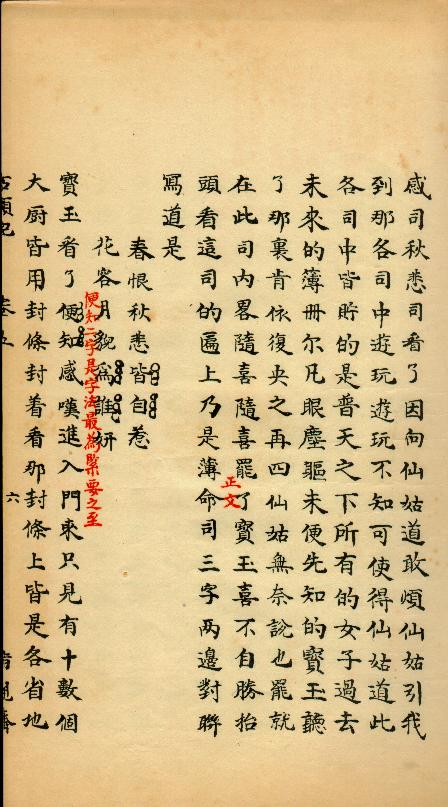 感司秋悲司看了因向仙姑道敢煩仙姑引我
到那各司中遊玩遊玩不知可使得仙姑道此
各司中皆貯的是普天之下所有的女子過去
未來的簿冊尔凡眼塵軀未便先知的寳玉聽
了那裏肯依復央之再四仙姑無奈說也罷就
在此司内畧隨喜隨喜罷了寳玉喜不自勝抬
正文
頭看這司的匾上乃是薄命司三字两邊對聯
寫道是
春恨秋悲皆自惹
花容月貌爲誰妍
便知二字是字法最為緊要之至
寳玉看了便知感嘆進入門來只見有十數個
大厨皆用封條封着看那封條上皆是各省地
石頭記 卷五 六